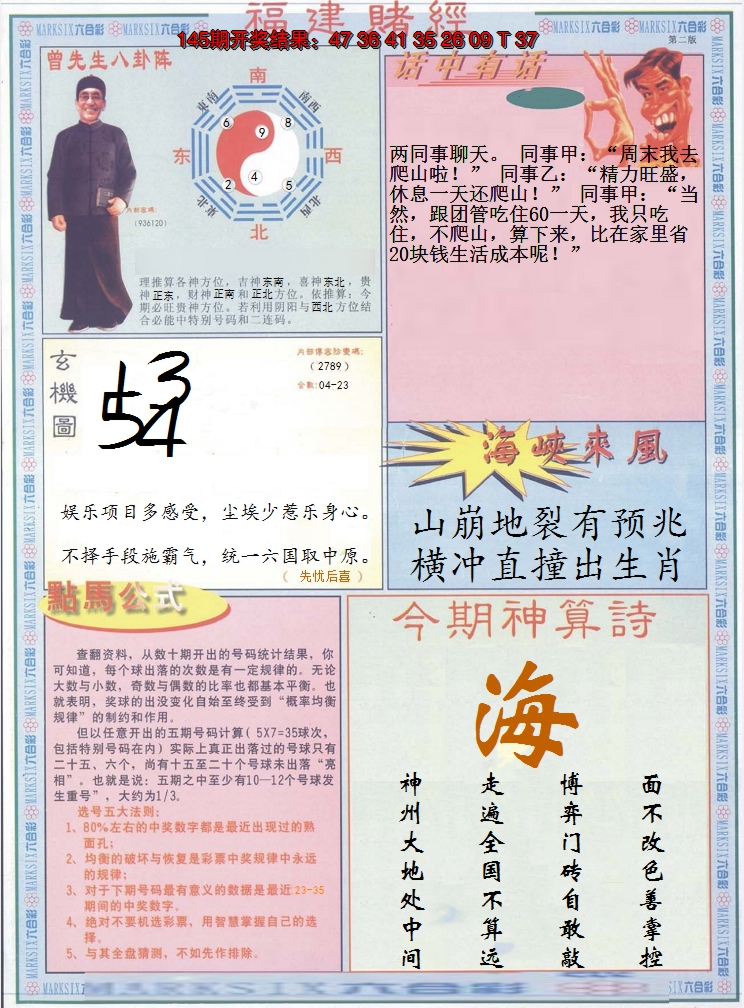 福建賭經
145期开奖结果：47 36 41 35 26 09 T 37
第二版
MARKSIX六合彩
曾先生八卦阵
南
东南
南西
6
8
9
东
西
4
2
5
东北
北西
北
内部密碼:
(936120)
理推算各神方位，吉神东南，喜神东北，贵
神正东，财神正南和正北方位。依推算：今
期必旺贵神方位。若利用阴阳与西北方位结
合必能中特别号码和二连码。
话中有话
两同事聊天。 同事甲：“周末我去
爬山啦！” 同事乙：“精力旺盛，
休息一天还爬山！” 同事甲：“当
然，跟团管吃住60一天，我只吃
住，不爬山，算下来，比在家里省
20块钱生活成本呢！”
玄機圖
（2789）
合数:04-23
娱乐项目多感受，尘埃少惹乐身心。
不择手段施霸气，统一六国取中原。
（ 先忧后喜 ）
海峽來風
山崩地裂有预兆
横冲直撞出生肖
點馬公式
查翻资料，从数十期开出的号码统计结果，你
可知道，每个球出落的次数是有一定规律的。无论
大数与小数，奇数与偶数的比率也都基本平衡。也
就表明，奖球的出没变化自始至终受到“概率均衡
规律”的制约和作用。
但以任意开出的五期号码计算( 5X7=35球次，
包括特别号码在内) 实际上真正出落过的号球只有
二十五、六个，尚有十五至二十个号球未出落“亮
相”。也就是说：五期之中至少有10—12个号球发
生重号”，大约为1/3。
选号五大法则：
1、80%左右的中奖数字都是最近出现过的熟
面孔；
2、均衡的破坏与恢复是彩票中奖规律中永远
的规律；
3、对于下期号码最有意义的数据是最近23-35
期间的中奖数字。
4、绝对不要机选彩票，用智慧掌握自己的选
择。
5、与其全盘猜测，不如先作排除。
今期神算詩
海
神州大地处中间
走遍全国不算远
博弈门砖自敢敲
面不改色善掌控